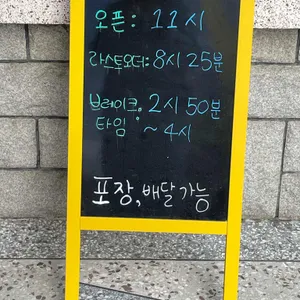 오픈: 11시
라스트오더: 8시 25분
브레이크: 2시 50분
타임 ~ 4시
포장, 배달 가능